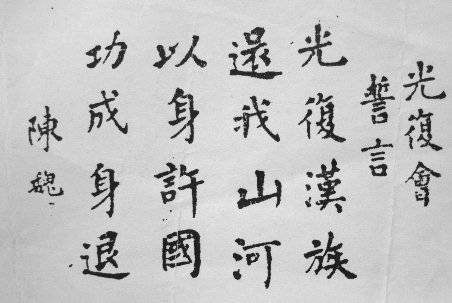 光復會
誓言
光復漢族
還我山河
以身許國
功成身退
陳魏